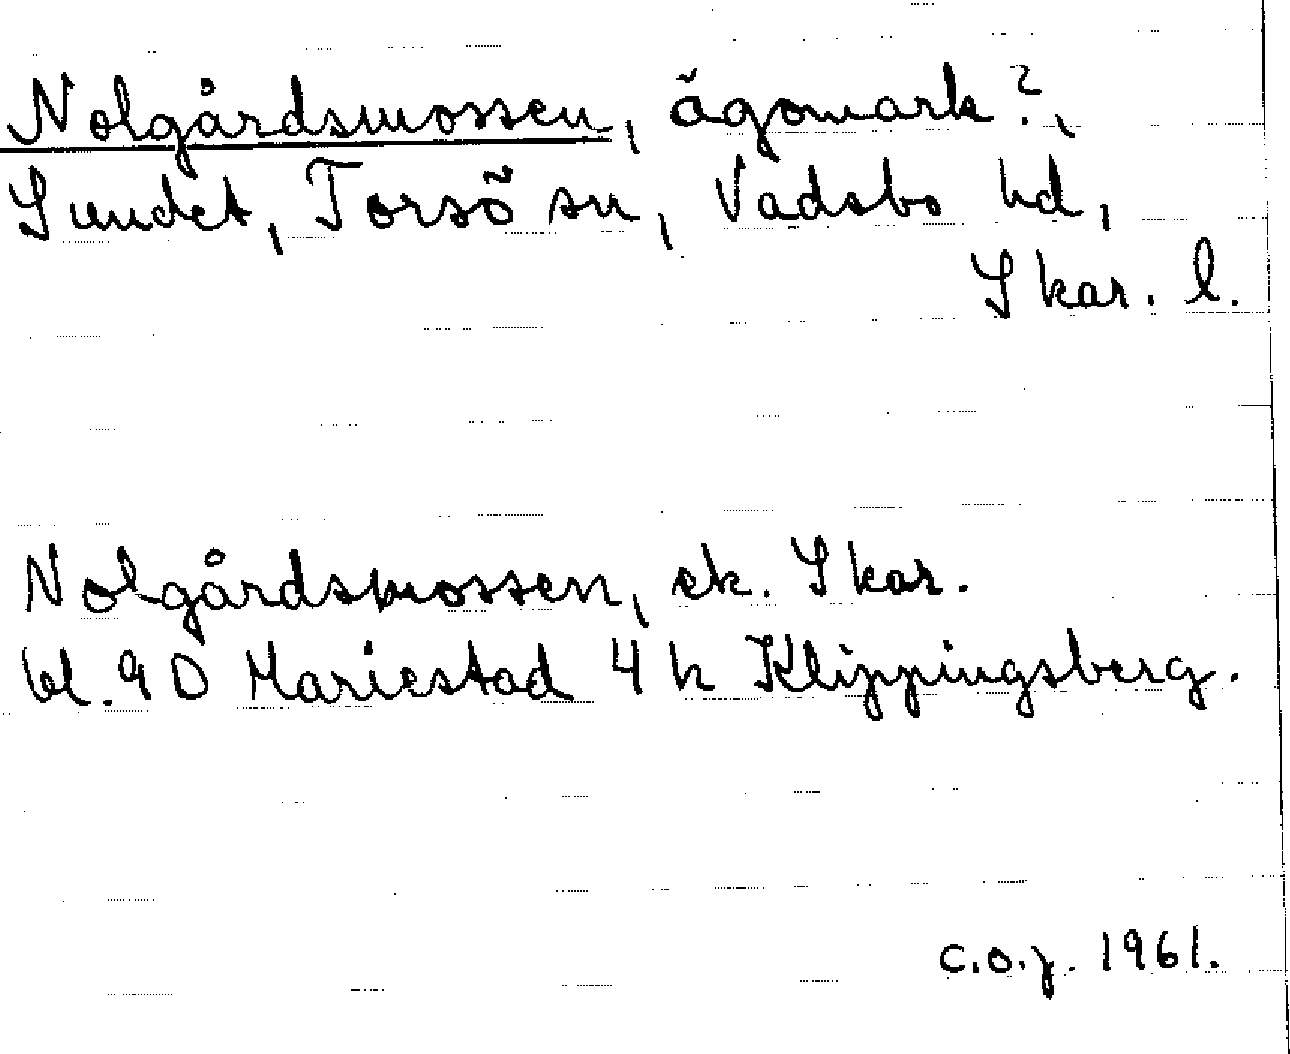 Nolgårdsmossen, ägomark?,
Sundet, Torsö sn, Vadsbo hd,
Skar. l.
Nolgårdsmossen, ek. Skar.
bl. 9D Mariestad 4 h Klippingsberg.
C.O.J. 1961.